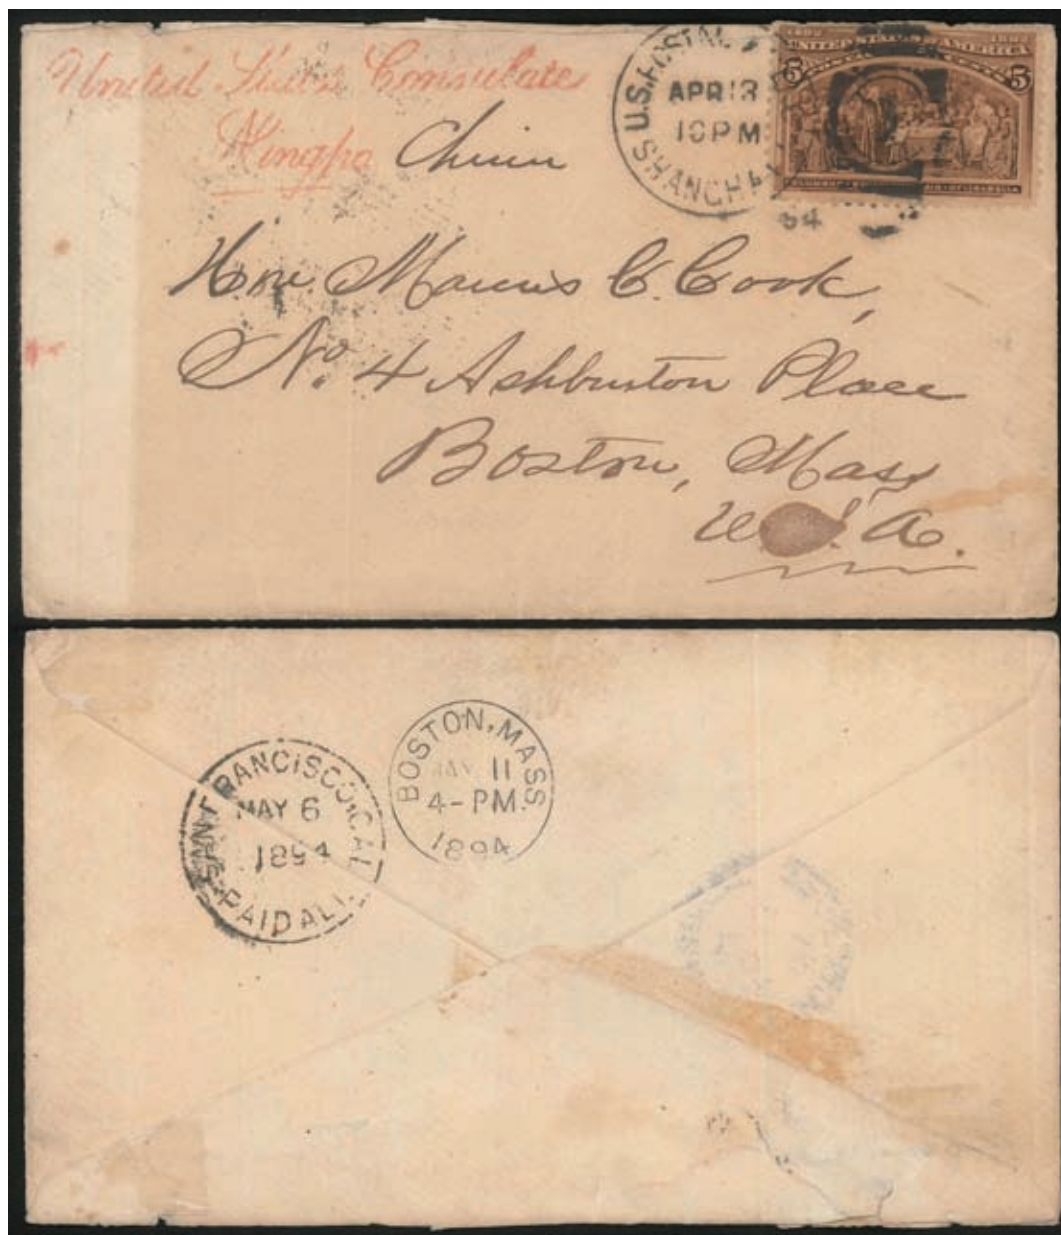 United States Consulate
Ningpo China
U.S. POSTAL
APR 13
10 PM
SHANGHAI
94
1492 1892
UNITED STATES OF AMERICA
5 CENTS 5
Hon. Marcus C. Cook,
No. 4 Ashburton Place
Boston, Mass
U.S.A.
SAN FRANCISCO, CAL.
MAY 6
1894
PAID ALL.
BOSTON, MASS
MAY 11
4-PM.
1894